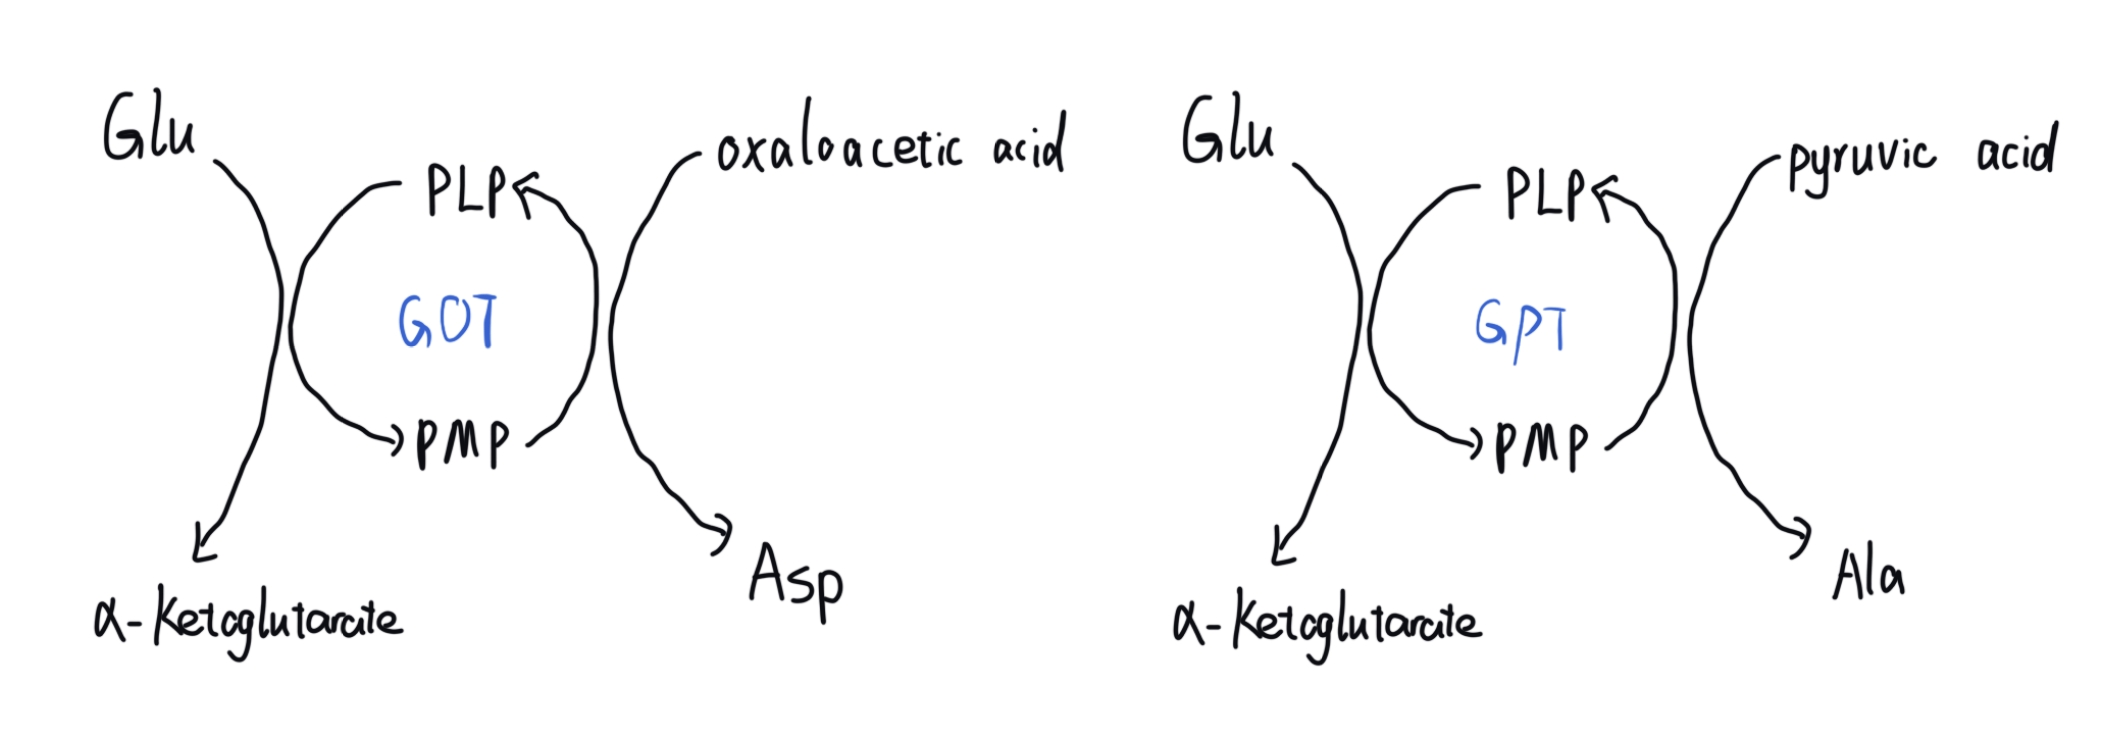 Glu
PLP
oxaloacetic acid
GOT
PMP
Asp
α-Ketoglutarate
Glu
PLP
pyruvic acid
GPT
PMP
Ala
α-Ketoglutarate